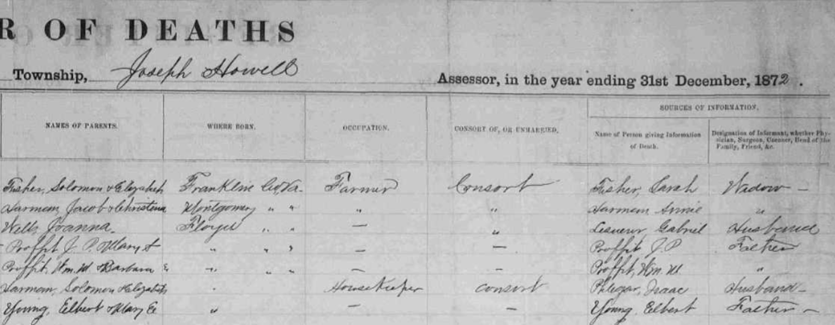 R OF DEATHS
Township, Joseph Howell Assessor, in the year ending 31st December, 1872.
SOURCES OF INFORMATION.
NAMES OF PARENTS. WHERE BORN. OCCUPATION. CONSORT OF, OR UNMARRIED. Name of Person giving Information of Death. Designation of Informent, whether Physician, Surgeon, Coroner, Head of the Family, Friend, &c.
Fisher, Solomon & Elizabeth Franklin Co Va. Farmer Consort Fisher, Sarah Wadow —
Harmem Jacob & Christena Montgomery " " " " Harmem Annie "
Wells Joanna. Floyd " " — " Gabriel Husband
Proffit J. P. Mary " " " — — Proffit J. P Father
Proffit, Wm. M & Barbara " " " — Proffit, Wm M "
Harmem, Solomon & Elizabeth " Housekeeper consort Phlegar, Isaac Husband —
Young, Elbert & Mary E " — — Young, Elbert Father —